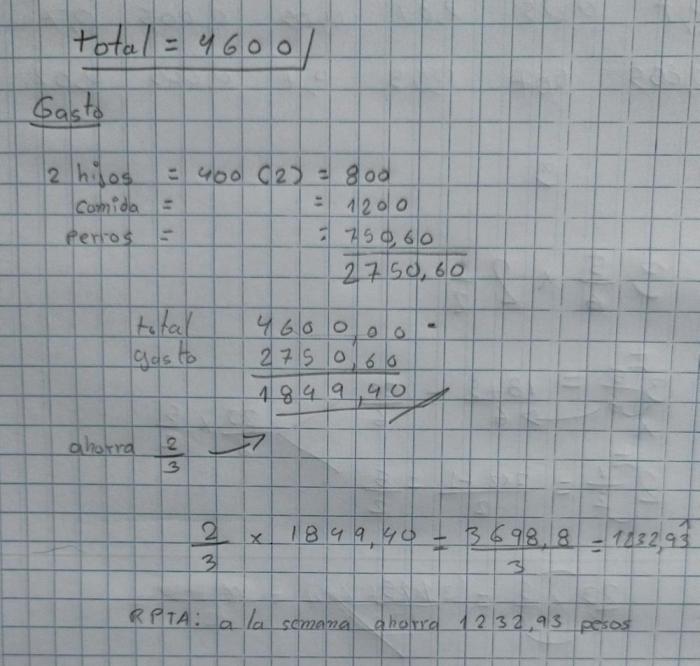 total = 4600
Gasto
2 hijos = 400 (2) = 800
comida = = 1200
perros = = 750,60
2750,60
total 4600,00 -
gasto 2750,60
1849,40
ahorra 2/3 →
2/3 × 1849,40 = 3698,8/3 = 1232,93
RPTA: a la semana ahorra 1232,93 pesos